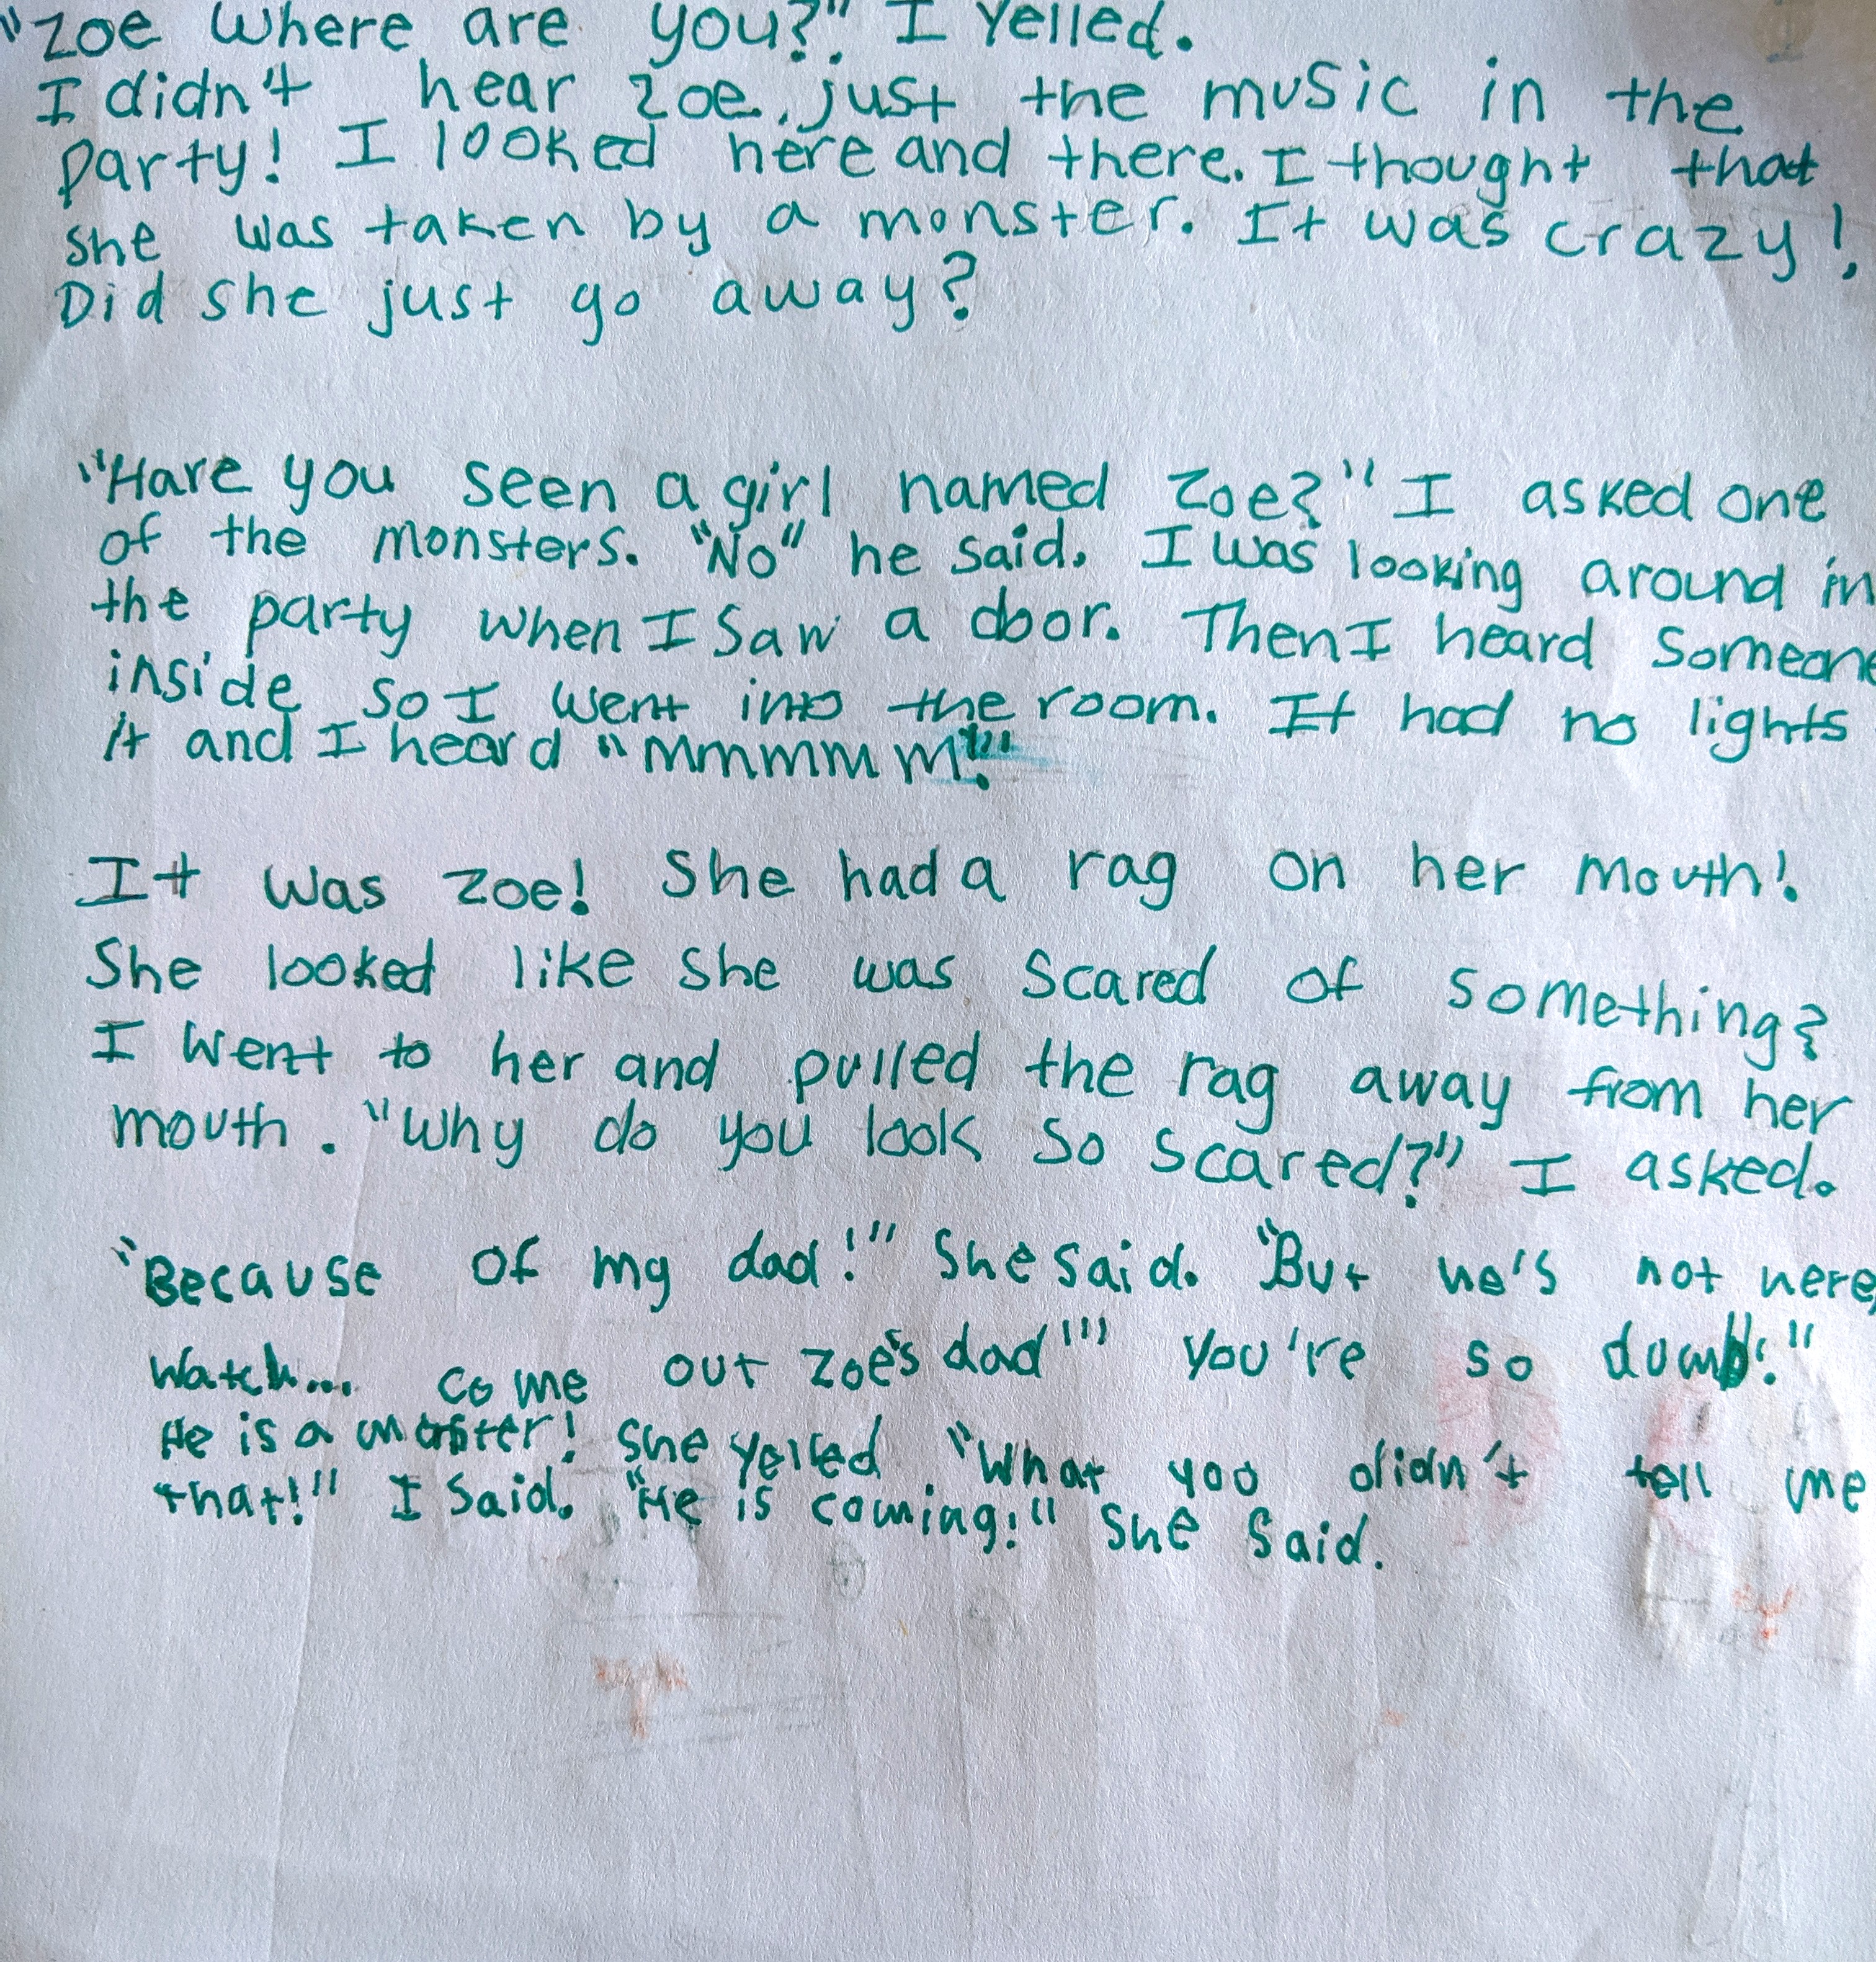 "Zoe where are you?" I yelled.
I didn't hear Zoe, just the music in the
party! I looked here and there. I thought that
she was taken by a monster. It was crazy!
Did she just go away?
"Have you seen a girl named Zoe?" I asked one
of the monsters. "No" he said. I was looking around in
the party when I saw a door. Then I heard someone
inside so I went into the room. It had no lights
it and I heard "Mmmmm M!"
It was Zoe! She had a rag on her mouth!
She looked like she was scared of something?
I went to her and pulled the rag away from her
mouth. "Why do you look so scared?" I asked.
"Because of my dad!" She said. "But he's not here,
Watch... come out Zoe's dad"'" You're so dumb!"
He is a monster! she yelled. "What you didn't tell me
that!" I said. "He is coming!" She said.